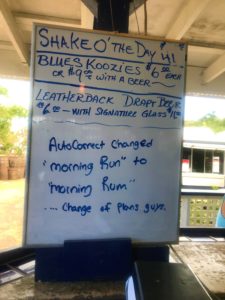 SHAKE O' THE DAY $4!
BLUES KOOZIES $6.00 EACH
OR $9.00 WITH A BEER
LEATHERBACK DRAFT BEER
$6.00 - WITH SIGNATURE GLASS
AutoCorrect Changed
"morning Run" to
"morning Rum"
.... Change of plans guys.